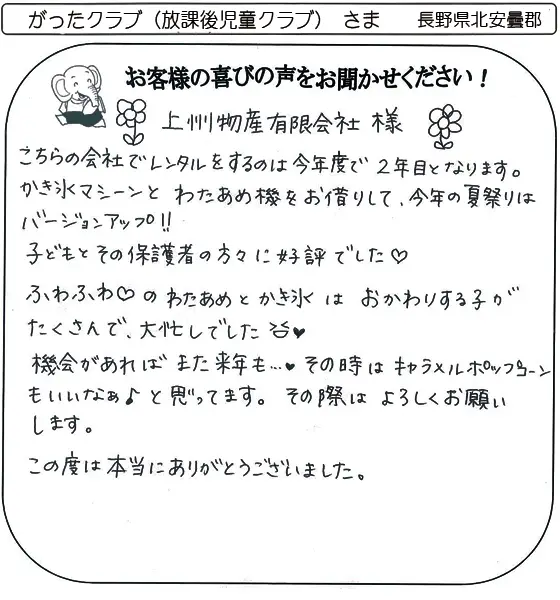 がったクラブ（放課後児童クラブ） さま 長野県北安曇郡
お客様の喜びの声をお聞かせください！
上州物産有限会社 様
こちらの会社でレンタルをするのは今年度で 2年目となります。
かき氷マシーンと わたあめ機をお借りして、今年の夏祭りは
バージョンアップ!!
子どもとその保護者の方々に好評でした♡
ふわふわ♡の わたあめとかき氷は おかわりする子が
たくさんで、大忙しでした♥
機会があれば また来年も…♥ その時は キャラメルポップコーン
もいいなぁ♪と思ってます。 その際は よろしくお願い
します。
この度は本当にありがとうございました。